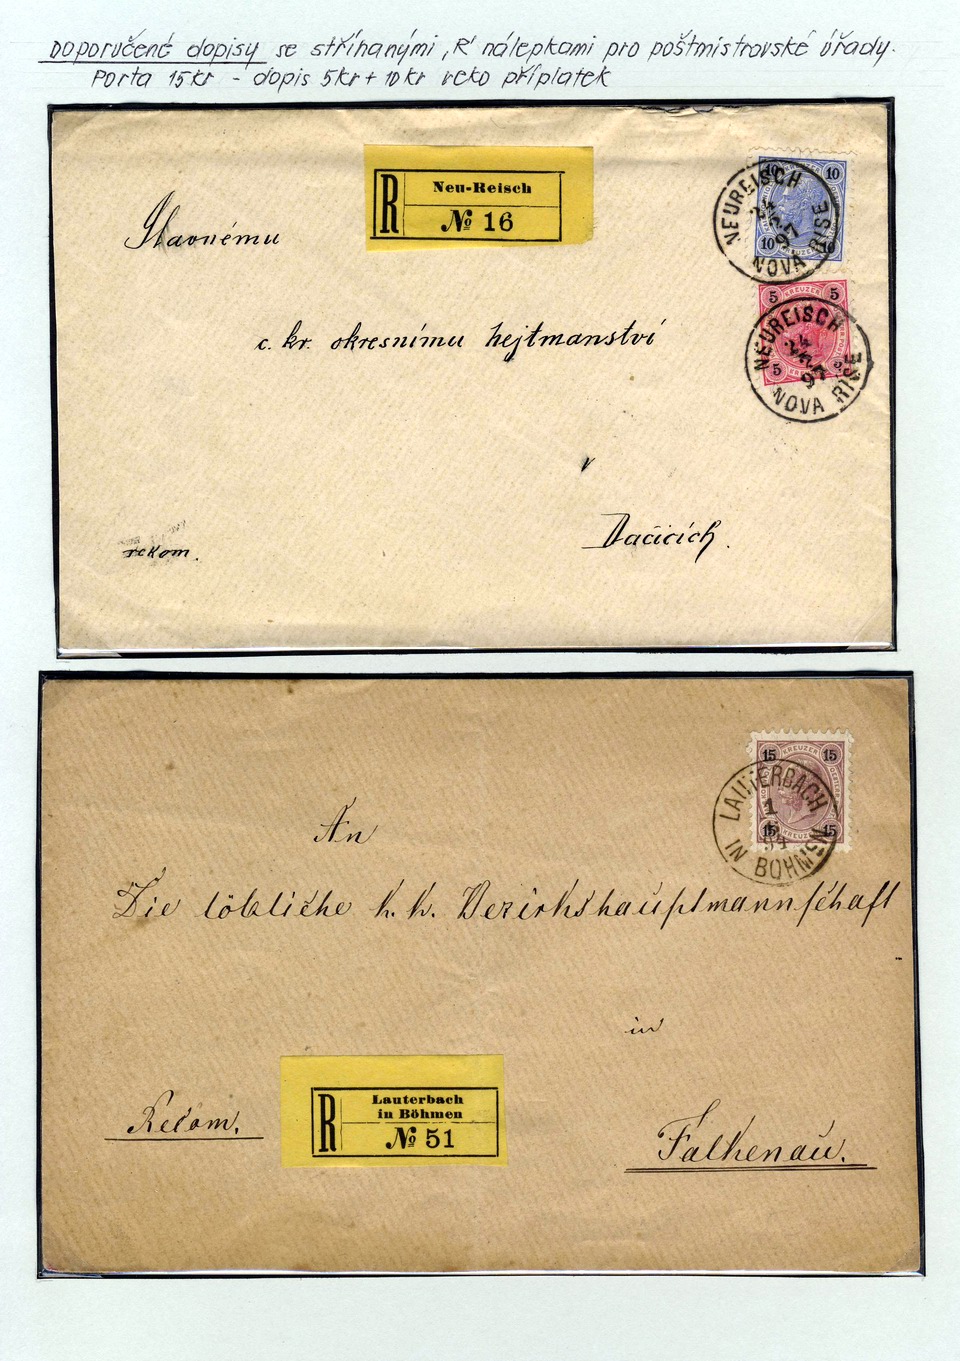 Doporučené dopisy se stříhanými ‚R' nálepkami pro poštmistrovské úřady.
Porta 15kr - dopis 5kr + 10kr reko příplatek
R
Neu-Reisch
№ 16
10 10
10 10
KREUZER
NEUREISCH
24
97
NOVA RISE
Slavnému
5 KREUZER 5
5 5
NEUREISCH
24
97
NOVA RISE
c. kr. okresnímu hejtmanství
v
Dačicích.
rekom.
15 KREUZER 15
15 15
KREUZER
LAUTERBACH
1
94
IN BÖHMEN
An
Die löbliche k. k. Bezirkshauptmannschaft
in
R
Lauterbach
in Böhmen
№ 51
Recom.
Falkenau.